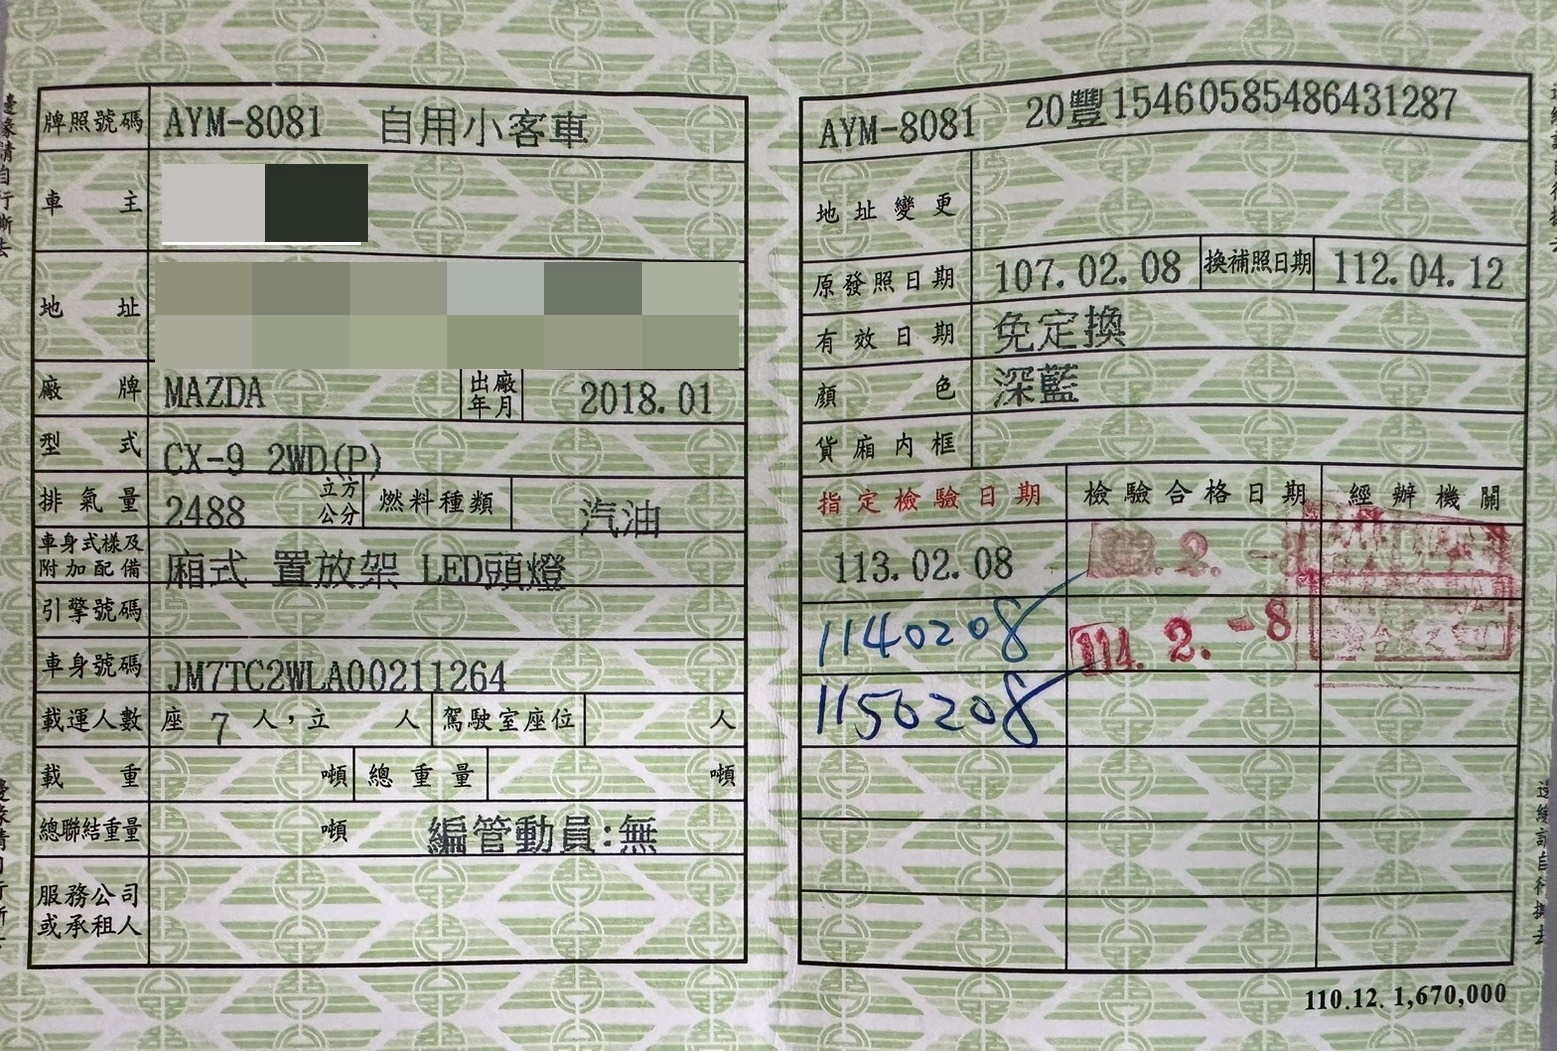 牌照號碼 AYM-8081 自用小客車
車主
地址
廠牌 MAZDA 出廠年月 2018.01
型式 CX-9 2WD(P)
排氣量 2488 立方公分 燃料種類 汽油
車身式樣及附加配備 廂式 置放架 LED頭燈
引擎號碼
車身號碼 JM7TC2WLA00211264
載運人數 座 7 人，立 人 駕駛室座位 人
載重 噸 總重量 噸
總聯結重量 噸 編管動員:無
服務公司或承租人
AYM-8081 20豐15460585486431287
地址變更
原發照日期 107.02.08 換補照日期 112.04.12
有效日期 免定換
顏色 深藍
貨廂內框
指定檢驗日期 檢驗合格日期 經辦機關
113.02.08
1140208 114.2.-8
1150208
110.12. 1,670,000